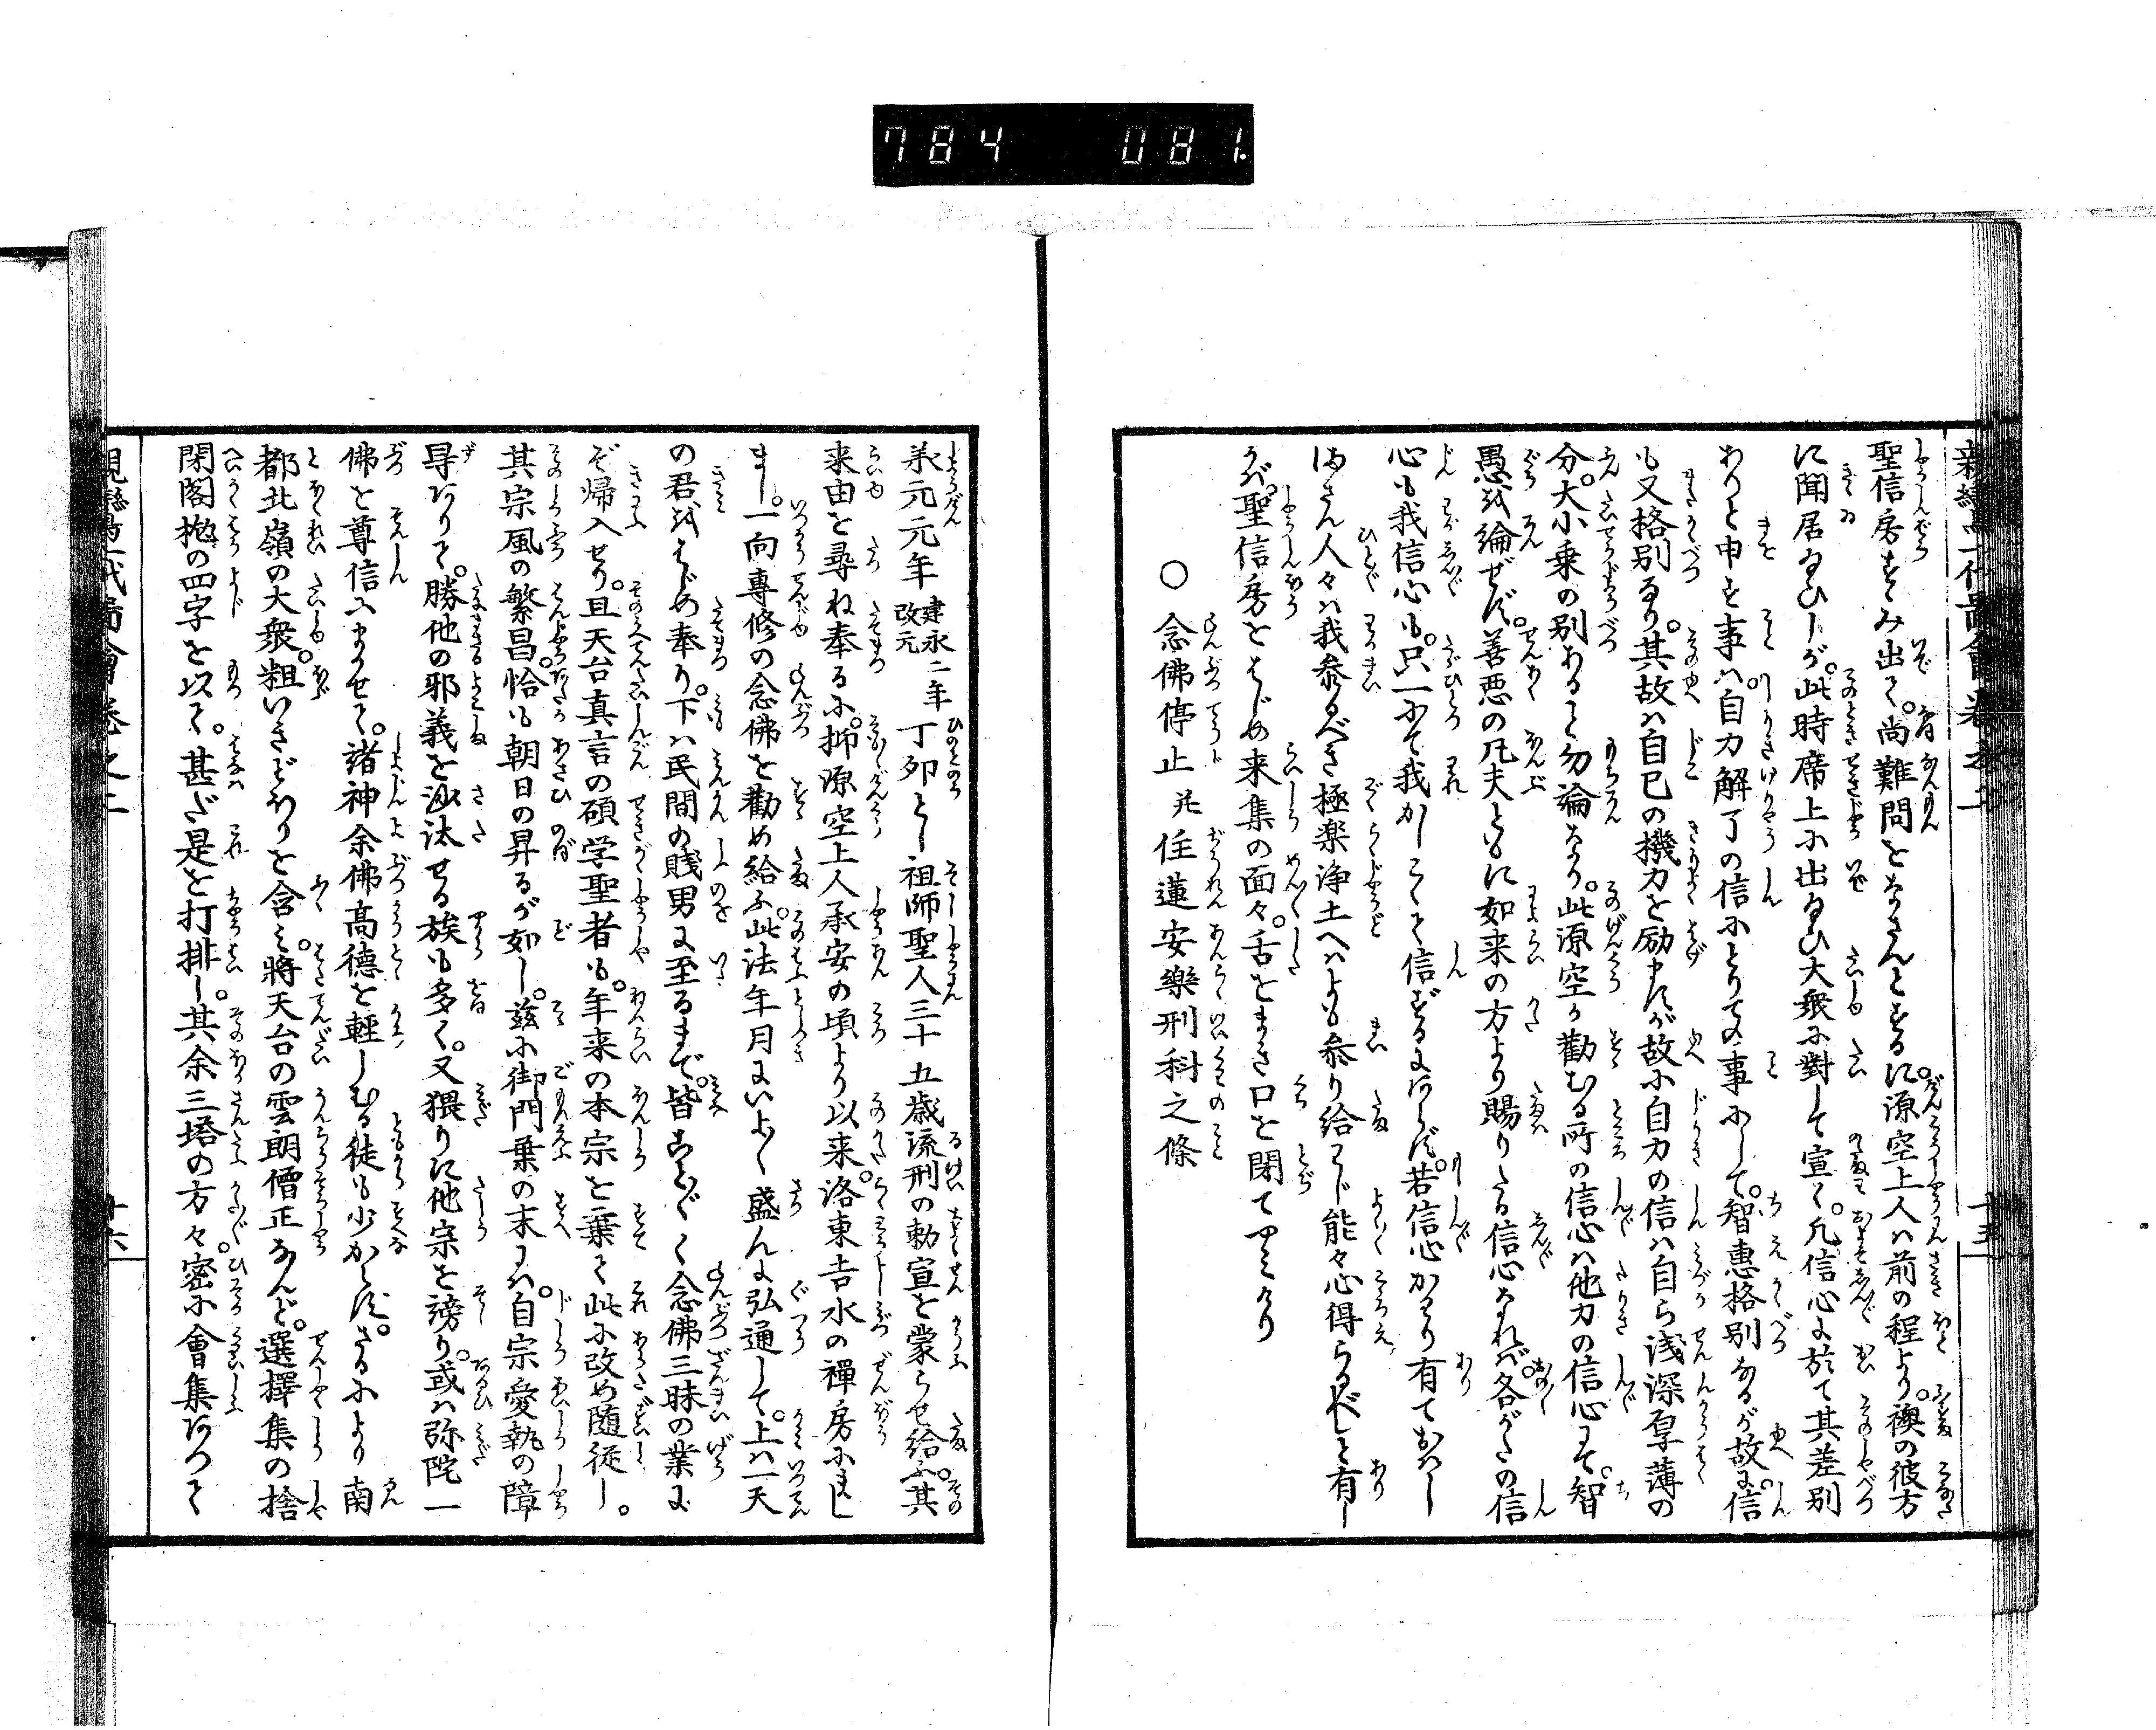 784 081.
聖信房すゝみ出て。尚難問をなさんとするに。源空上人ハ前の程より。襖の彼方
に聞居給ひしが。此時席上に出給ひ大衆に對して宣く。凡信心に於て其差別
ありと申す事ハ。自力解了の信にとりての事にして。智惠格別なるが故に。信
も又格別なり。其故ハ自己の機力を励ますが故に自力の信ハ自ら浅深厚薄の
分。大小乗の別あること勿論なり。此源空が勸むる所の信心ハ他力の信心にて。智
愚を論ぜず。善悪の凡夫ともに如来の方より賜りたる信心なれバ。各がたの信
心も我信心も。只一にて我かしこくて信ずるにあらず。若信心かはり有ておはし
まさん人々ハ我参るべき極楽浄土へハよも参り給はじ能々心得らるべしと有し
かバ。聖信房をはじめ来集の面々。舌をまき口を閉てやみけり
○念佛停止并住蓮安樂刑科之條
承元元年建永二年改元丁卯とし祖師聖人三十五歳流刑の勅宣を蒙らせ給ふ。其
来由を尋ね奉るに。抑源空上人承安の頃より以来。洛東吉水の禪房にまし
まし。一向専修の念佛を勸め給ふ。此法年月にいよ〱盛んに弘通して。上ハ一天
の君をはじめ奉り。下ハ民間の賤男に至るまで。皆こと〲く念佛三昧の業に
ぞ帰入せり。且天台真言の碩学聖者も。年来の本宗を棄て此に改め随従し。
其宗風の繁昌。恰も朝日の昇るが如し。茲に御門葉の末にハ。自宗愛執の障
㝵ありて。勝他の邪義を沙汰せる族も多く。又猥りに他宗を謗り。或ハ弥陀一
佛を尊信いたさせて。諸神余佛高徳を輕しむる徒も少からず。さるにより南
都北嶺の大衆。粗いきどほりを含み。將天台の雲朗僧正なんど。選擇集の捨
閉閣抛の四字を以て。甚だ是を打排し。其余三塔の方々密に會集ありて
親鸞一代圖會巻之二
廿六